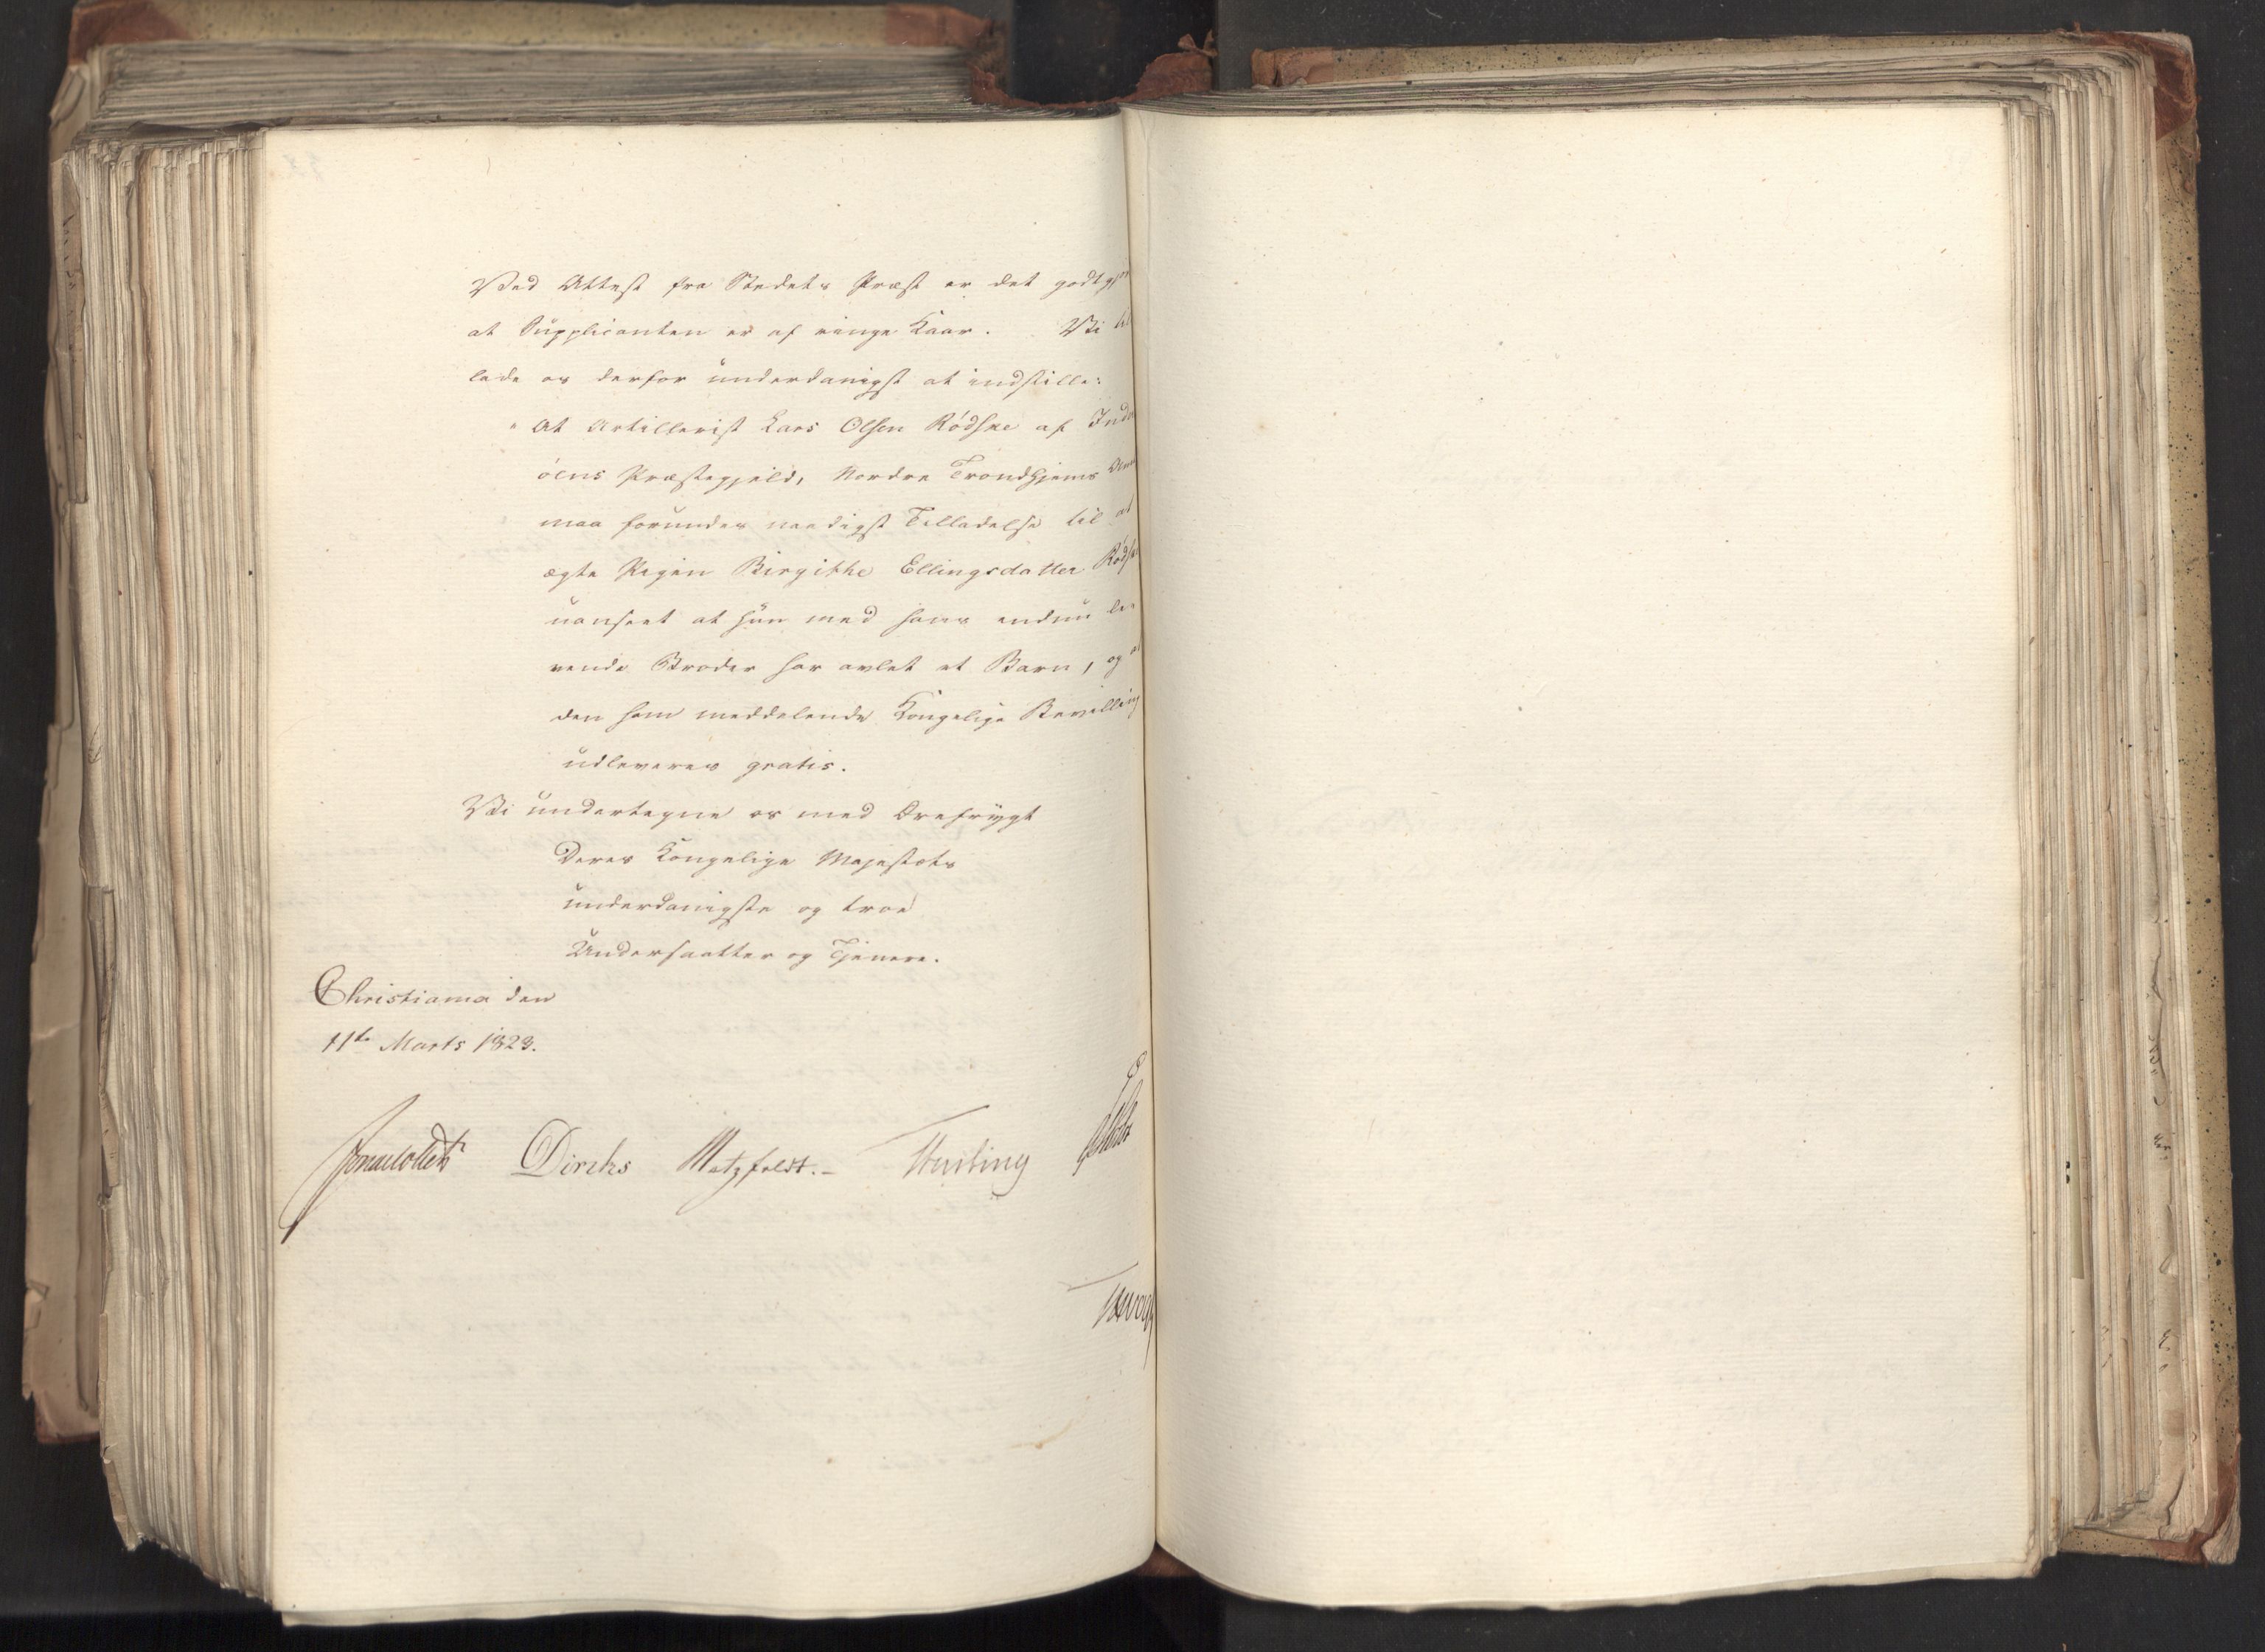 Ved Attest fra Stedets Præst er det godtgjor
at Supplicanten er af ringe Kaar. Vi til
lade os derfor underdanigst at indstille:
"At Artillerist Lars Olsen Rödske af Inder
öens Præstegjeld, Nordre Trondhjems Amt
maa forundes naadigst Tilladelse til at
ægte Pigen Birgithe Ellingsdatter Rödsk
uanseet at hun med hans endnu le-
vende Broder har avlet et Barn, og at
den ham meddelende Kongelige Bevilling
udleveres gratis.
Vi undertegne os med Ærefrÿgt
Deres Kongelige Majestæts
underdanigste og troe
Undersaatter og Tjenere.
Christiania den
11te Marts 1823.
Diriks Motzfeldt.-